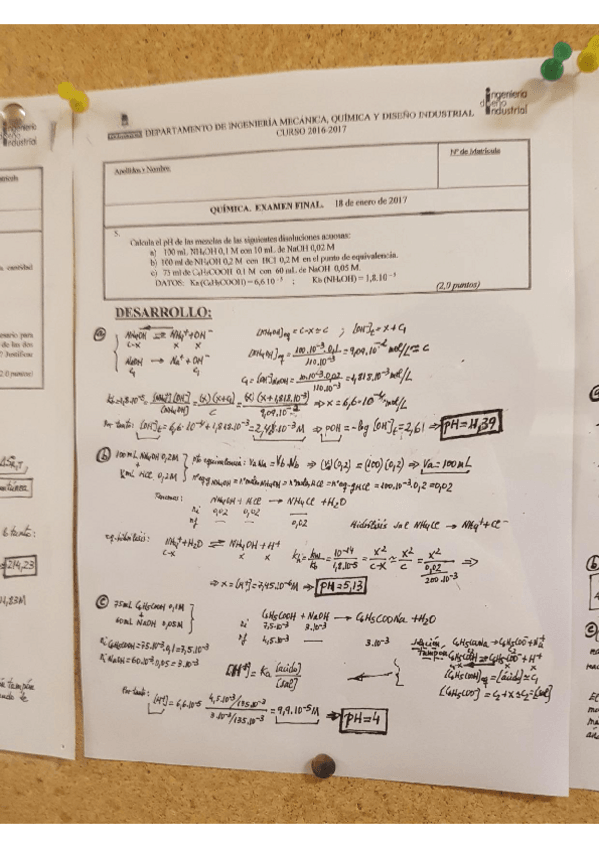 ingeniería
diseño
industrial
DEPARTAMENTO DE INGENIERÍA MECÁNICA, QUÍMICA Y DISEÑO INDUSTRIAL
CURSO 2016-2017
Apellidos y Nombre.
Nº de Matrícula
QUÍMICA. EXAMEN FINAL. 18 de enero de 2017
5.
Calcula el pH de las mezclas de las siguientes disoluciones acuosas:
a) 100 mL NH₄OH 0,1 M con 10 mL de NaOH 0,02 M
b) 100 ml de NH₄OH 0,2 M con HCl 0,2 M en el punto de equivalencia.
c) 75 ml de C₆H₅COOH 0,1 M con 60 mL de NaOH 0,05 M.
DATOS: Ka(C₆H₅COOH) = 6,6·10⁻⁵ ; Kb(NH₄OH) = 1,8.10⁻⁵
(2,0 puntos)
DESARROLLO:
a) NH₄OH ⇌ NH₄⁺ + OH⁻ [NH₄OH]eq = c-x ≃ c ; [OH⁻]t = x + c₁
c-x x x
NaOH → Na⁺ + OH⁻ [NH₄OH]eq = 100.10⁻³.0,1/110.10⁻³ = 9,09.10⁻² mol/L ≃ c
c₁ c₁ c₁ = [OH⁻]NaOH = 10.10⁻³.0,02/110.10⁻³ = 1,818.10⁻³ mol/L
Kb = 1,8.10⁻⁵ = [NH₄⁺][OH⁻]/[NH₄OH] = (x)(x+c₁)/c = (x)(x+1,818.10⁻³)/9,09.10⁻² ⇒ x = 6,6.10⁻⁴ mol/L
Por tanto: [OH⁻]t = 6,6.10⁻⁴ + 1,818.10⁻³ = 2,48.10⁻³ M ⇒ pOH = -log [OH⁻]t = 2,61 ⇒ pH = 11,39
b) 100 mL NH₄OH 0,2M + V mL HCl 0,2M
Pto equivalencia: Va.Na = Vb.Nb ⇒ (Va)(0,2) = (100)(0,2) ⇒ Va = 100 mL
nºeq NH₄OH = nºmoles NH₄OH = nºmoles HCl = nºeq HCl = 200.10⁻³.0,2 = 0,02
Tenemos: NH₄OH + HCl → NH₄Cl + H₂O
ni 0,02 0,02
nf — — 0,02 Hidrólisis sal NH₄Cl → NH₄⁺ + Cl⁻
eq. hidrólisis: NH₄⁺ + H₂O ⇌ NH₄OH + H⁺ Kh = Kw/Kb = 10⁻¹⁴/1,8.10⁻⁵ = x²/c-x ≃ x²/c = x²/0,02/200.10⁻³ ⇒
c-x x x
⇒ x = [H⁺] = 7,45.10⁻⁶ M ⇒ pH = 5,13
c) 75mL C₆H₅COOH 0,1M + 60mL NaOH 0,05M
C₆H₅COOH + NaOH → C₆H₅COONa + H₂O
ni 7,5.10⁻³ 3.10⁻³
nf 4,5.10⁻³ — 3.10⁻³
ni C₆H₅COOH = 75.10⁻³.0,1 = 7,5.10⁻³
ni NaOH = 60.10⁻³.0,05 = 3.10⁻³
C₆H₅COONa → C₆H₅COO⁻ + Na⁺
C₆H₅COOH ⇌ C₆H₅COO⁻ + H⁺
[H⁺] = Ka [ácido]/[sal]
[C₆H₅COOH]eq = [ácido] ≃ c₁
[C₆H₅COO⁻] = c₂ + x ≃ c₂ = [sal]
Por tanto: [H⁺] = 6,6.10⁻⁵ 4,5.10⁻³/135.10⁻³ / 3.10⁻³/135.10⁻³ = 9,9.10⁻⁵ M ⇒ pH = 4
214,23